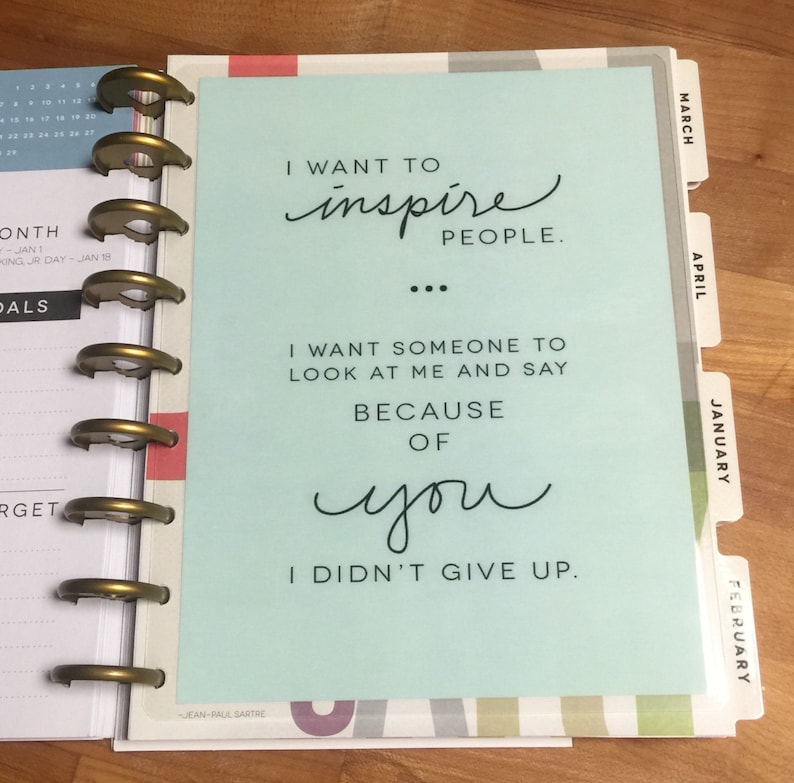 1 2 3 4 5 6
7 8 9 10 11 12 13
14 15 16 17 18 19 20
22 23 24 25 26 27
29
ONTH
– JAN 1
KING, JR. DAY – JAN 18
OALS
RGET
I WANT TO
inspire
PEOPLE.
...
I WANT SOMEONE TO
LOOK AT ME AND SAY
BECAUSE
OF
you
I DIDN'T GIVE UP.
-JEAN-PAUL SARTRE
MARCH
APRIL
JANUARY
FEBRUARY